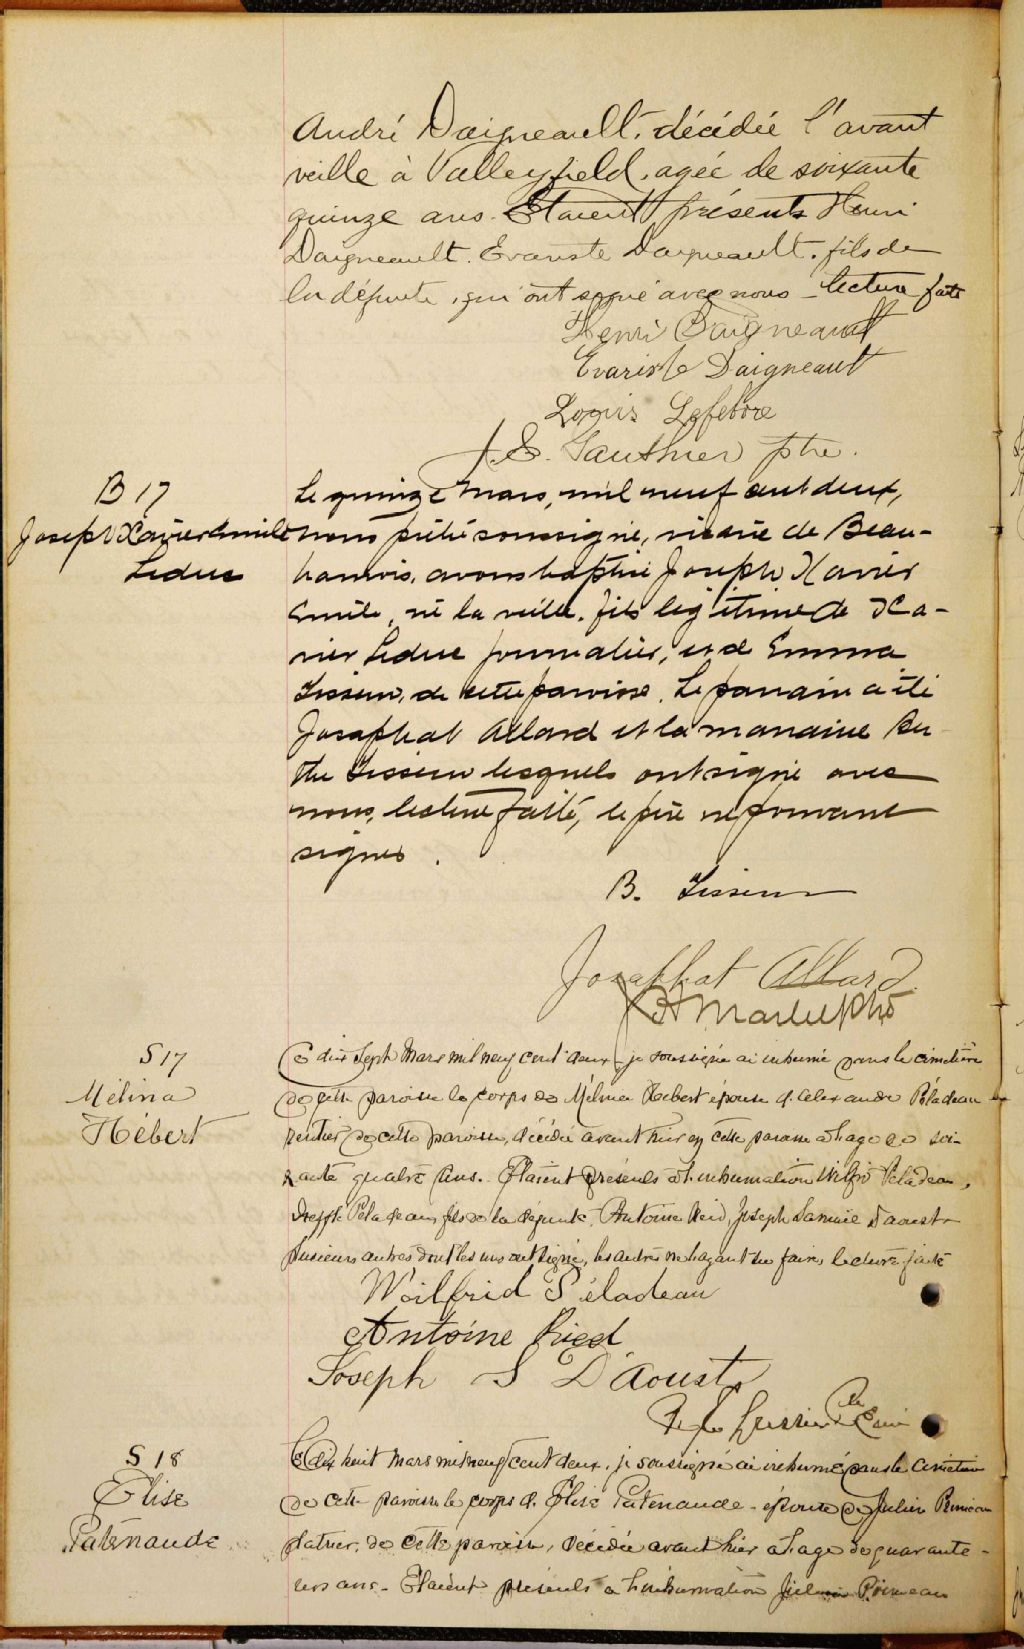 André Daigneault, décédée l'avant
veille à Valleyfield, agée de soixante
quinze ans. Etaient présents Henri
Daigneault. Evariste Daigneault. fils de
la défunte, qui ont signé avec nous - lecture faite
Henri Daigneault
Evariste Daigneault
Louis Lefebvre
J. E. Gauthier ptre.
B 17
Joseph Xavier Emile
Leduc
Le quinze Mars, mil neuf cent deux,
nous prêtre soussigné, vicaire de Beau-
harnois, avons baptisé Joseph Xavier
Emile, né la veille, fils légitime de Xa-
vier Leduc journalier, et de Emma
de cette paroisse. Le parrain a été
Josaphat Allard et la marraine Ber
the lesquels ont signé avec
nous, lecture faite, le père ne pouvant
signer.
B.
Josaphat Allard
S 17
Mélina
Hébert
Ce dix sept Mars mil neuf cent deux, je soussigné ai inhumé dans le cimetière
de cette paroisse le corps de Mélina Hebert épouse d'Alexandre Péladeau
rentier, de cette paroisse, décédée avant hier en cette paroisse à l'age de soi-
xante quatre ans. Etaient présents à l'inhumation Wilfrid Péladeau,
Péladeau, fils de la défunte, Antoine Reid, Joseph Samuel Daoust
plusieurs autres dont les uns ont signé, les autres ne sachant le faire, lecture faite
Wilfrid Péladeau
Antoine Ried
Joseph S D'Aoust
S 18
Elise
Patenaude
Ce dix huit Mars mil neuf cent deux, je soussigné ai inhumé dans le cimetière
de cette paroisse le corps d'Elise Patenaude - épouse de Julien Primeau
platrier, de cette paroisse, décédée avant hier à l'age de quarante-
ans. Etaient présents à l'inhumation Julien Primeau